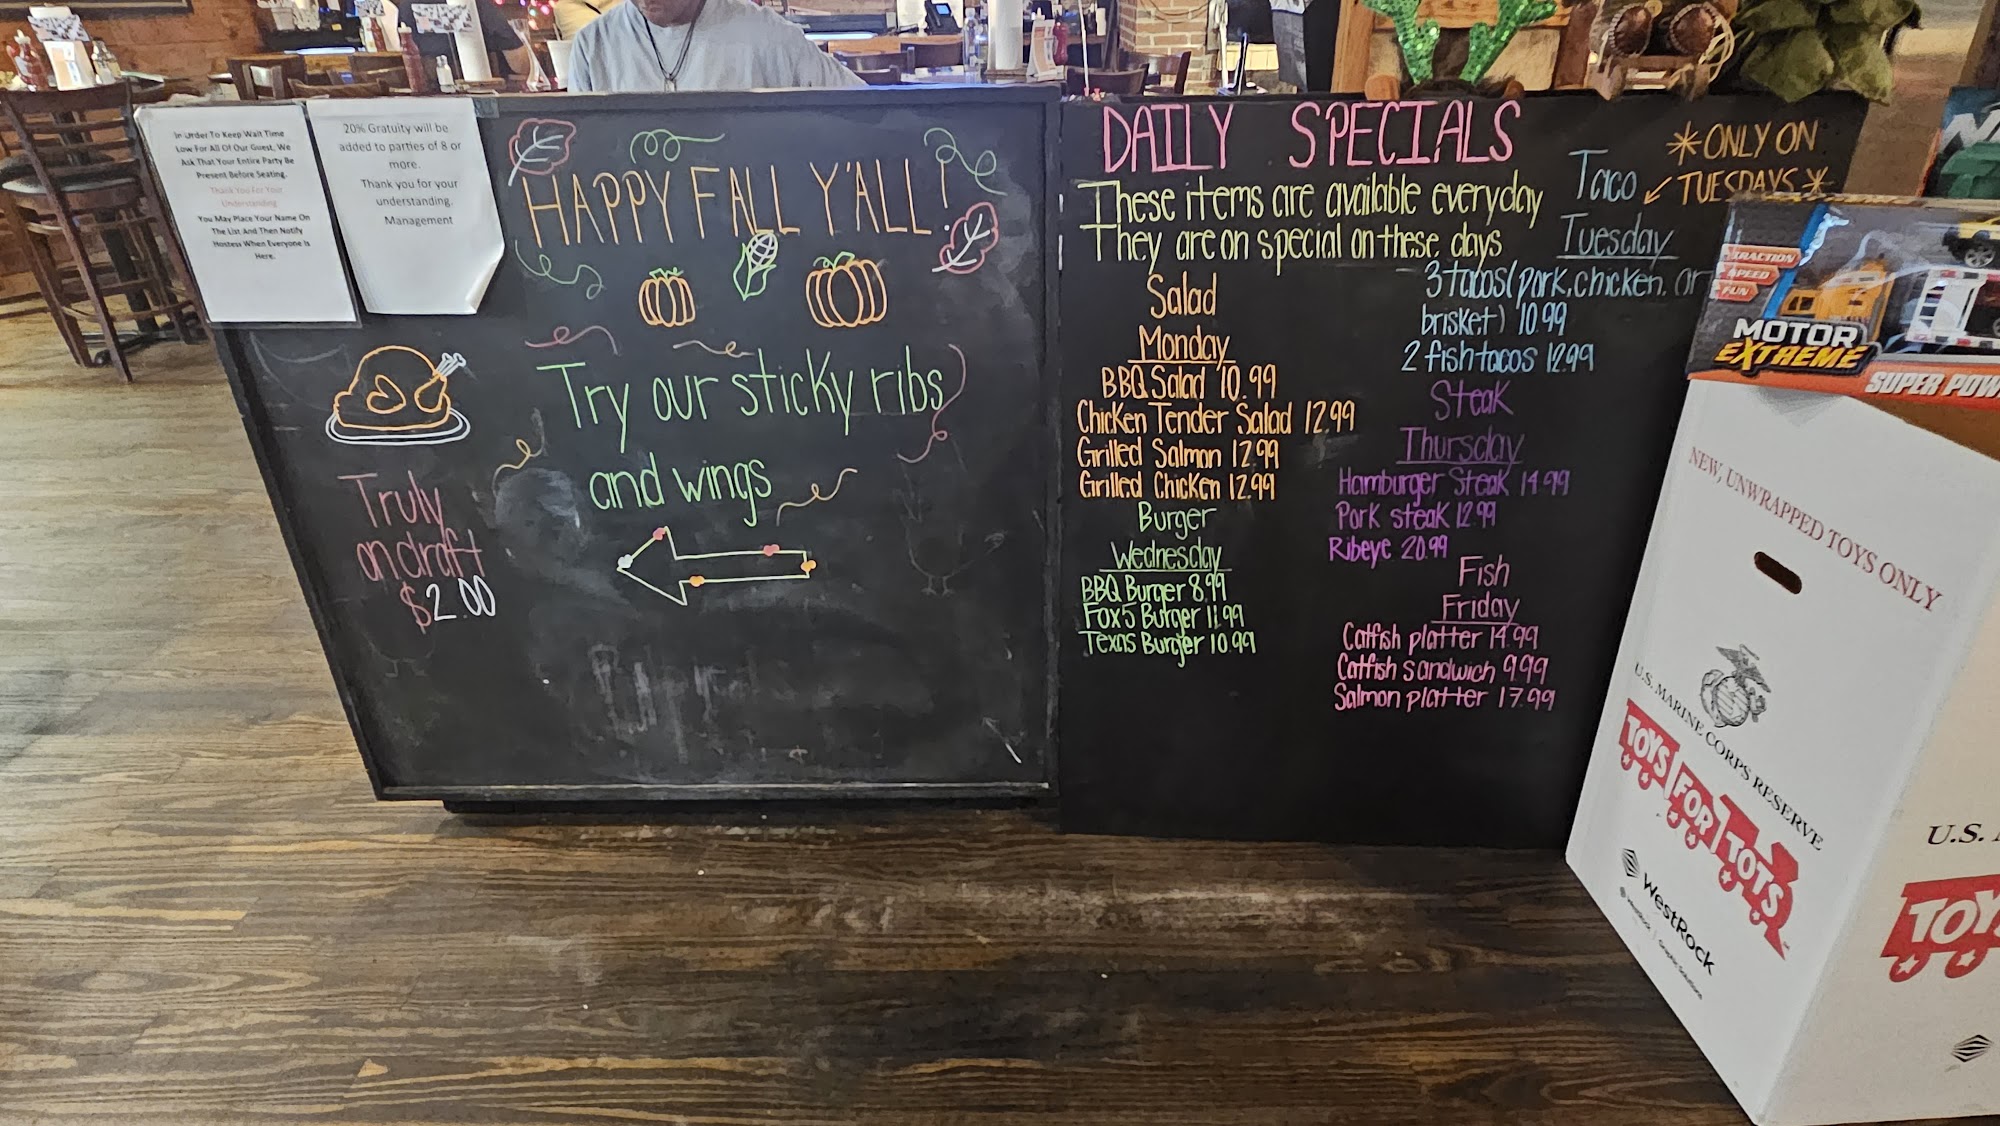 In Order To Keep Wait Time
Low For All Of Our Guest, We
Ask That Your Entire Party Be
Present Before Seating.
Thank You For Your
Understanding
You May Place Your Name On
The List And Then Notify
Hostess When Everyone Is
Here.
20% Gratuity will be
added to parties of 8 or
more.
Thank you for your
understanding.
Management
HAPPY FALL Y'ALL!
Try our sticky ribs
and wings
Truly
on draft
$2.00
DAILY SPECIALS
These items are available everyday
They are on special on these days
Salad
Monday
BBQ Salad 10.99
Chicken Tender Salad 12.99
Grilled Salmon 12.99
Grilled Chicken 12.99
Burger
Wednesday
BBQ Burger 8.99
Fox 5 Burger 11.99
Texas Burger 10.99
*ONLY ON
TUESDAYS*
Taco
Tuesday
3 tacos (pork, chicken, or
brisket) 10.99
2 fish tacos 12.99
Steak
Thursday
Hamburger Steak 14.99
Pork steak 12.99
Ribeye 20.99
Fish
Friday
Catfish platter 14.99
Catfish sandwich 9.99
Salmon platter 17.99
TRACTION
SPEED
FUN
MOTOR
EXTREME
SUPER POW
NEW, UNWRAPPED TOYS ONLY
U.S. MARINE CORPS RESERVE
TOYS FOR TOTS
WestRock
U.S.
TOY